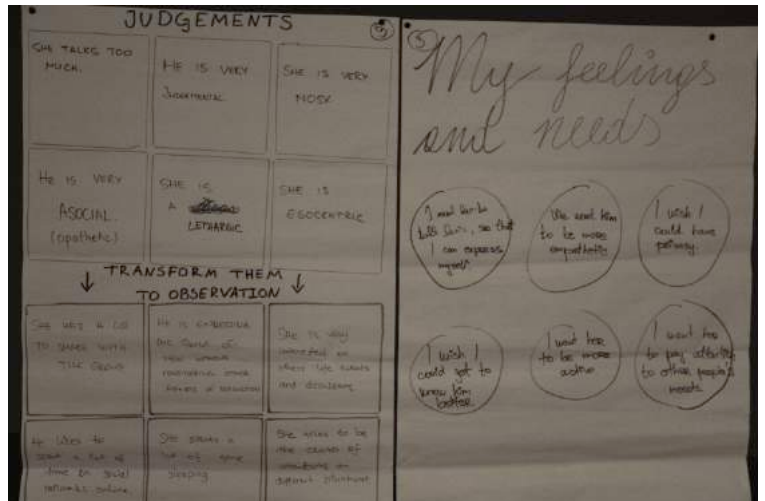 JUDGEMENTS
3
SHE TALKS TOO
MUCH.
HE IS VERY
JUDGEMENTAL
SHE IS VERY
NOSY.
HE IS VERY
ASOCIAL
(apathetic)
SHE IS
A
LETHARGIC
SHE IS
EGOCENTRIC
TRANSFORM THEM
TO OBSERVATION
SHE HAS A LOT
TO SHARE WITH
THE GROUP
HE IS EXPRESSING
HIS
SHE IS VERY
interested in
others life events
and
He likes to
spend a lot of
time on social
networks online.
She spends a
lot of time
sleeping
She to be
the center of
attention in
different situations
5
My feelings
and needs
I need her to
talk less, so that
I can express
myself
We need him
to be more
empathetic
I wish I
could have
privacy.
I wish I
could get to
know him
better
I want her
to be more
active
I want her
to pay attention
to other people's
needs